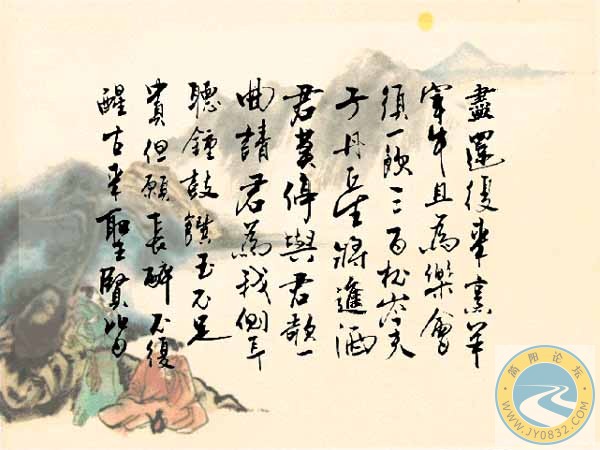 盡還復來烹羊
宰牛且為樂會
須一飲三百杯岑夫
子丹丘生將進酒
君莫停與君歌一
曲請君為我側耳
聽鐘鼓饌玉不足
貴但願長醉不復
醒古來聖賢皆
简阳论坛
WWW.JY0832.COM